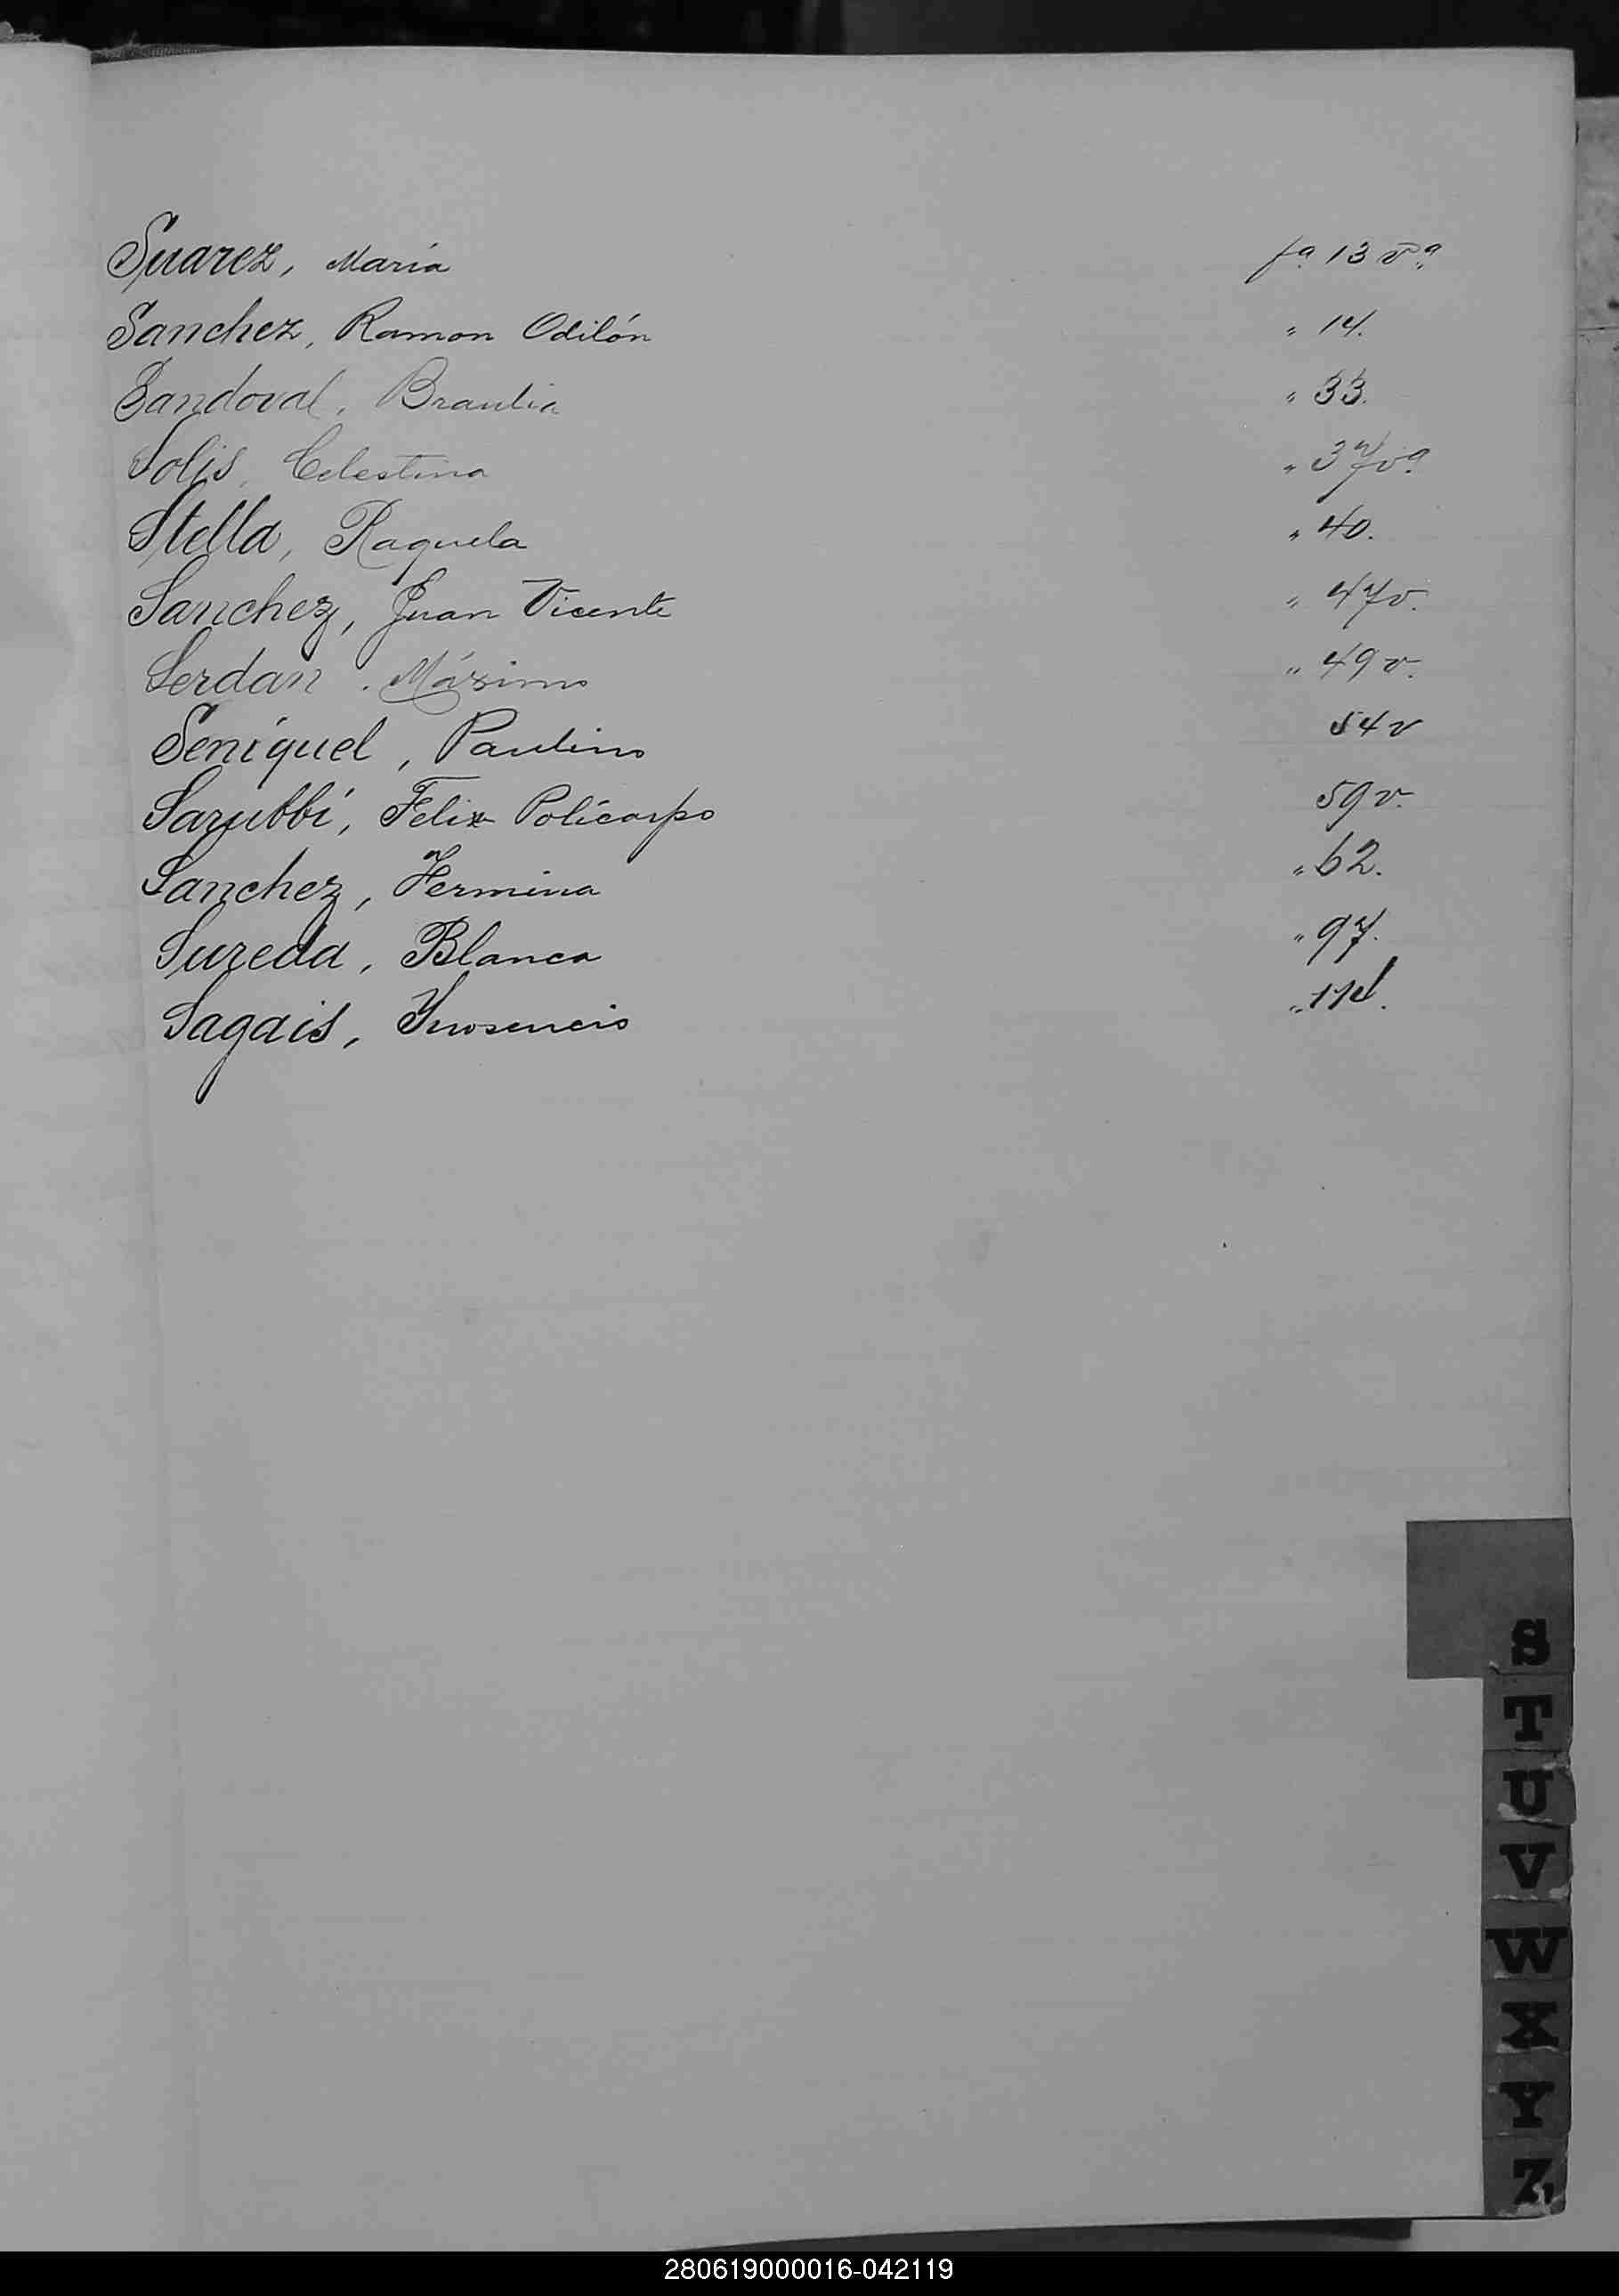 Suarez, María fª 13 vª
Sanchez, Ramon Odilón " 14.
Sandoval, Braulia " 33.
Solis, Celestina " 37vª
Stella, Raquela " 40.
Sanchez, Juan Vicente " 47v.
Serdan. Máximo " 49v.
Seniquel, Paulino 54v
Sarubbi, Felix Policarpo 59v.
Sanchez, Hermina " 62.
Sureda, Blanca " 97.
Sagais, Ynosencio "
S
T
U
V
W
X
Y
Z
280619000016-042119